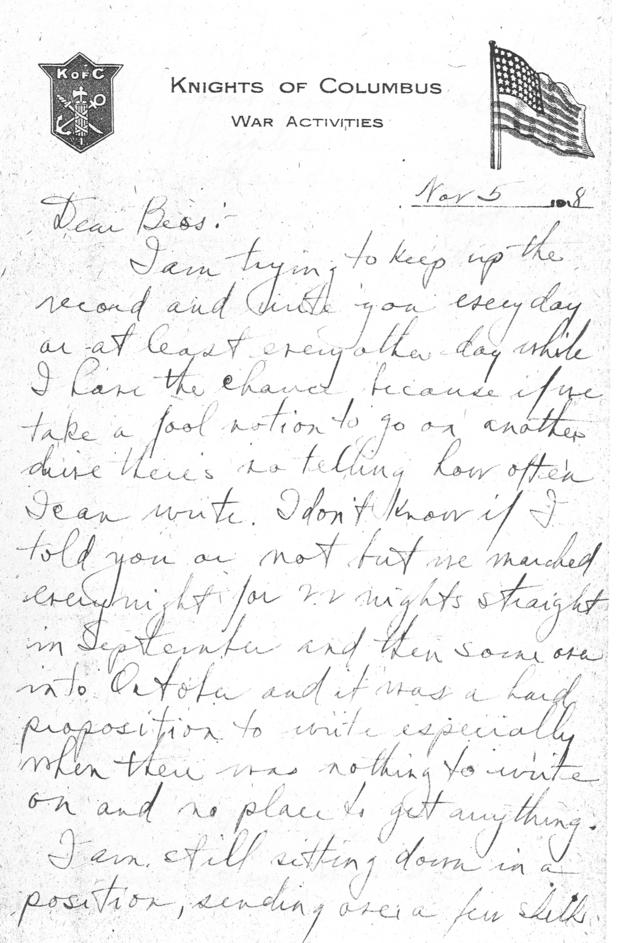 K OF C
KNIGHTS OF COLUMBUS
WAR ACTIVITIES
Nov 5 1918
Dear Bess:-
I am trying to keep up the
record and write you every day
or at least every other day while
I have the chance because if we
take a fool notion to go on another
drive there's no telling how often
I can write. I don't know if I
told you or not but we marched
every night for 22 nights straight
in September and then some over
into October and it was a hard
proposition to write especially
when there was nothing to write
on and no place to get anything.
I am still sitting down in a
position, sending over a few shells